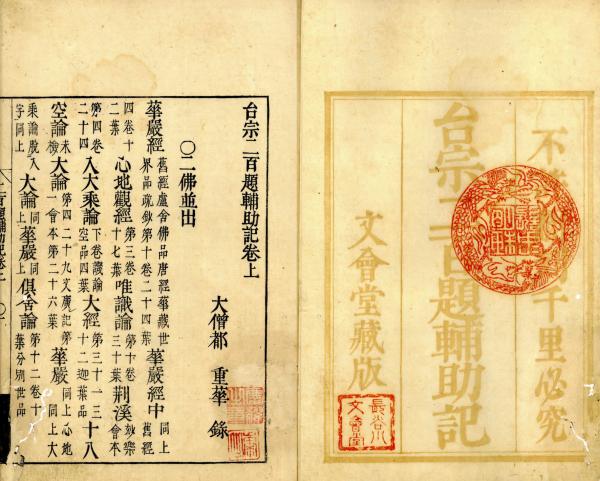 千里必究
台宗二百題輔助記
文會堂藏版
長谷川
文會堂
台宗二百題輔助記卷上
大僧都 重華 錄
〇二佛並出
華嚴經舊經盧舍佛品唐經華藏世界品疏鈔第十卷二十四葉華嚴經中同上舊經
四卷十二葉心地觀經第三卷十七葉唯識論第十卷三十葉荊溪樂會本
第四卷二十四入大乘論下卷議論空品四葉大經第三十一三十二迦葉品十八
空論未檢大論第四二十九文廣記第一會本第二十六葉華嚴同上心地同上大
乘論脫入字同上大論同上華嚴同上俱舍論第十二卷十葉分別世品